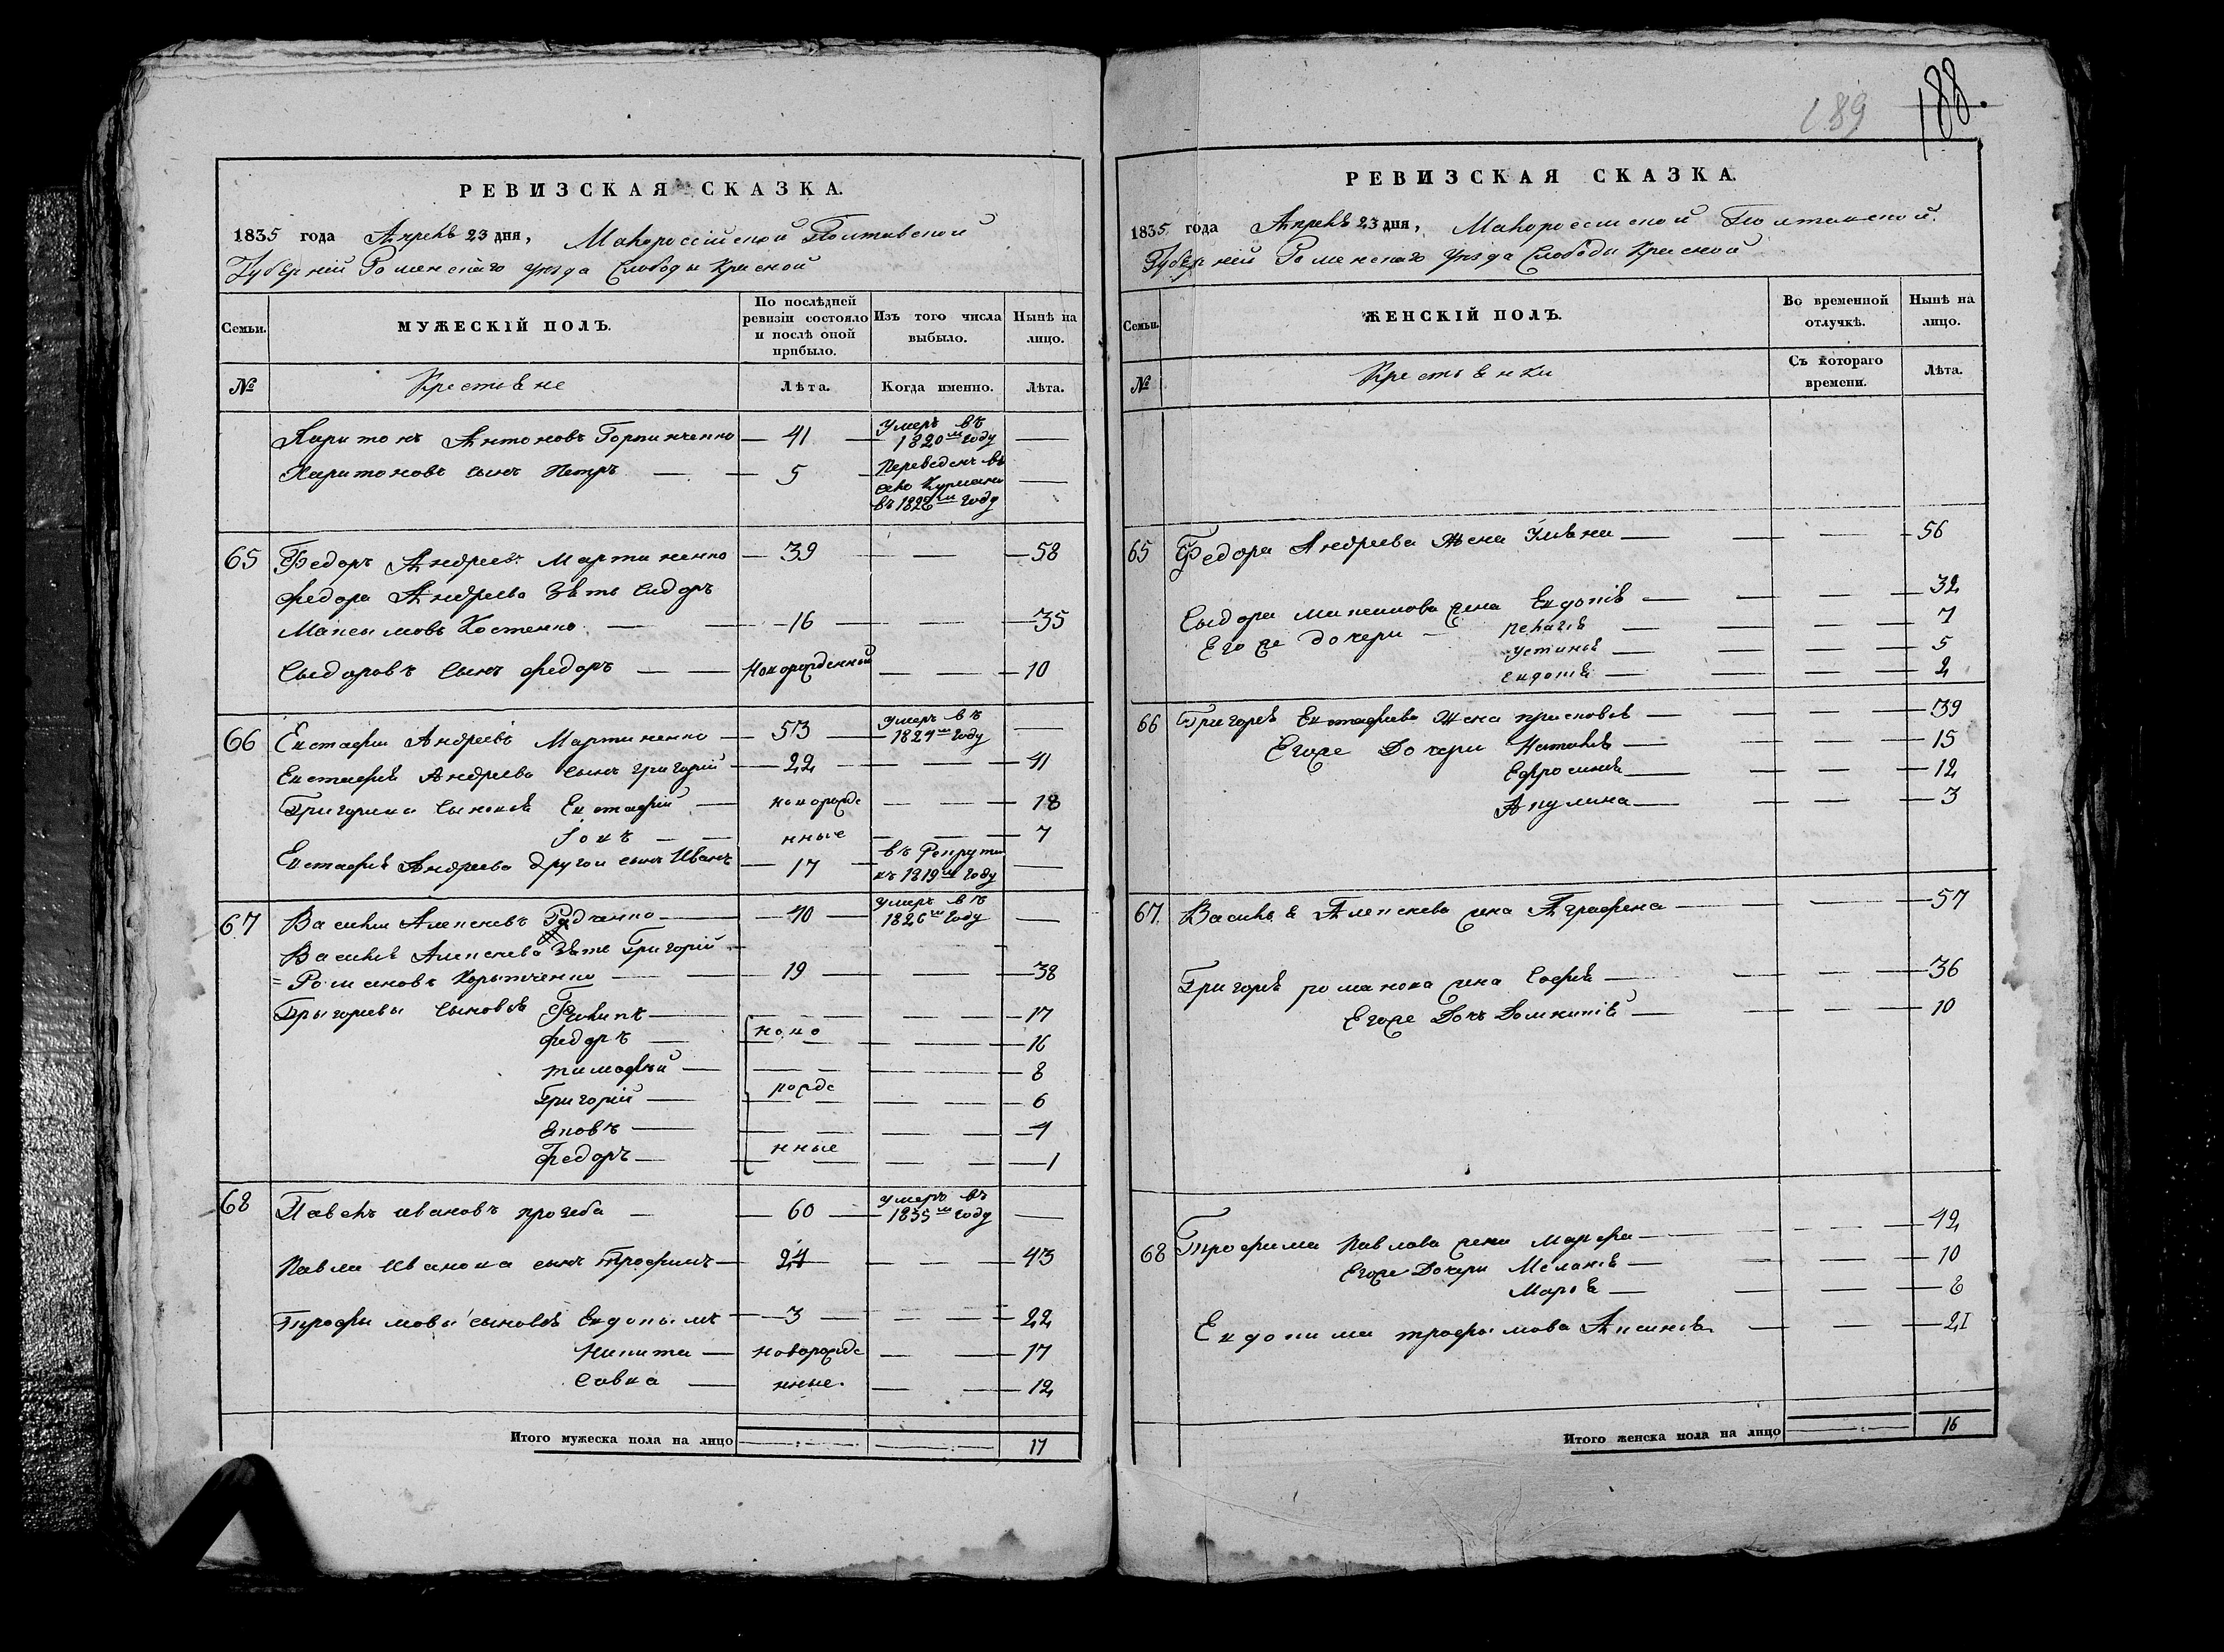 РЕВИЗСКАЯ СКАЗКА.
1835 года Апреля 23 дня, Малороссійской Полтавской
Губерніи Роменскаго уезда Слободы Красной
Семьи.
МУЖЕСКІЙ ПОЛЪ.
По послѣдней ревизіи состояло и послѣ оной прибыло.
Изъ того числа выбыло.
Нынѣ на лицо.
№
Крестьяне
Лѣта.
Когда именно.
Лѣта.
Харитонъ Антоновъ 41 Умеръ въ 1820м году
Харитоновъ сынъ Петръ 5 Переведенъ въ въ 1826м году
65 Федоръ Андреевъ Мартиненко 39 58
Федора Андреева Зять Сидоръ
Максымовъ Костенко 16 35
Сыдоровъ Сынъ Федоръ Новорожденный 10
66 Евстафий Андреевъ Мартиненко 53 Умеръ въ 1824м году
Евстафия Андреева Сынъ Григорій 22 41
Григорьева Сыновья Евстафій новорожде 18
Іовъ нные 7
Евстафия Андреева другой сынъ Иванъ 17 въ Рекруты въ 1819м году
67 Василий Алексеевъ Рудченко 40 Умеръ въ 1826м году
Василия Алексеева Зять Григорій
= Романовъ 19 38
Грыгорьевы Сыновья Филипъ 17
Федоръ ново 16
Тимофѣй 8
Григорій рожде 6
Яковъ 4
Федоръ нные 1
68 Павелъ Ивановъ 60 Умеръ въ 1835м году
Павла Иванова сынъ Трофимъ 24 43
Трофымовы сыновья Евдокымъ 3 22
Никита новорожде 17
Савка нные. 12
Итого мужеска пола на лицо 17
189 188.
РЕВИЗСКАЯ СКАЗКА.
1835 года Апреля 23 дня, Малороссійской Полтавской
Губерніи Роменскаго уезда Слободы Красной
Семьи.
ЖЕНСКІЙ ПОЛЪ.
Во временной отлучкѣ.
Нынѣ на лицо.
№
Крестьянки
Съ котораго времени.
Лѣта.
65 Федора Андреева Жена Уляна 56
Сыдора Максимова жена Евдокія 32
Его же дочери Пелагея 7
Устинья 5
Евдокія 2
66 Григорья Евстафиева Жена 39
Его же Дочери Наталья 15
Ефросинья 12
Акулина 3
67 Василья Алексеева жена Аграфена 57
Григорья Романова жена Софья 36
Его же Дочь Домникія 10
68 Трофима Павлова жена Марфа 42
Его же Дочери Меланія 10
Марья 8
Евдокима трофымова Аксинья 21
Итого женска пола на лицо 16